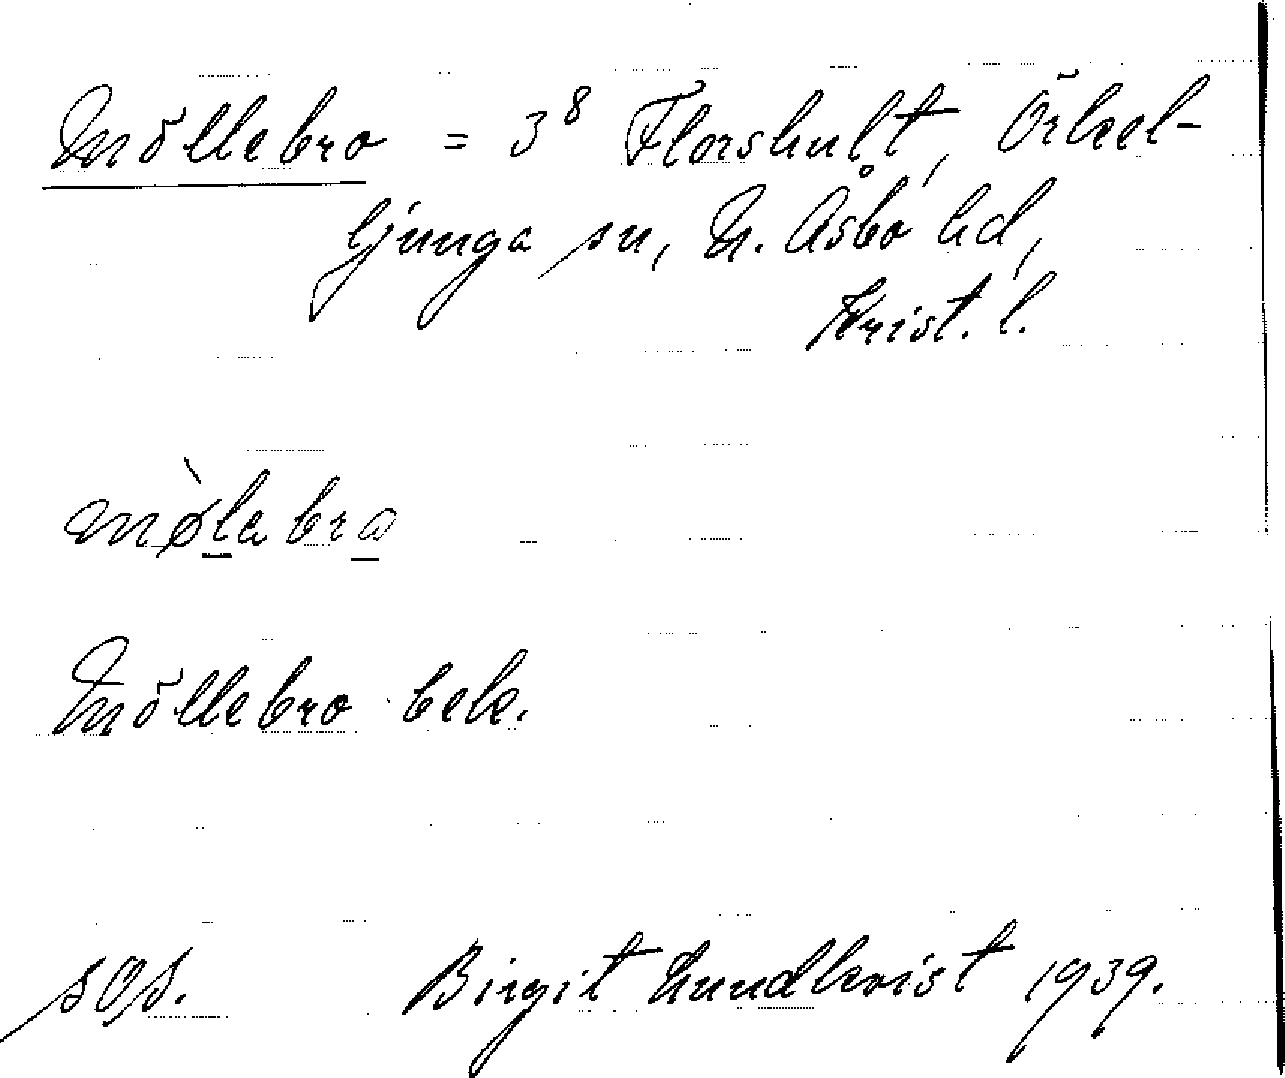 Möllebro = 3⁸ Florshult, Örkel-
ljunga sn, N. Åsbo hd,
Krist. l.
mø̀la bro
Möllebro bek.
sOs. Birgit Lundkvist 1939.